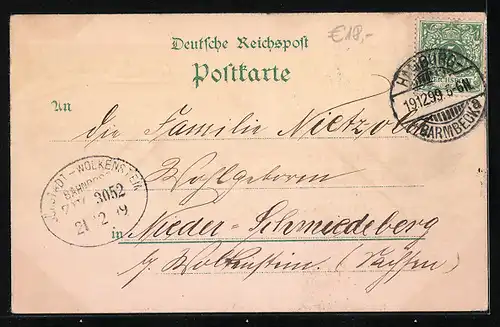 €18,-
Deutsche Reichspost
Postkarte
HAMBURG
19.12.99 5-6N.
BARMBECK
An
die Familie Nietzold
Wohlgeboren
JÖHSTADT-WOLKENSTEIN
BAHNPOST
ZUG 3052
21 12 99
in Nieder-Schmiedeberg
b/ Wolkenstein. (Sachsen)